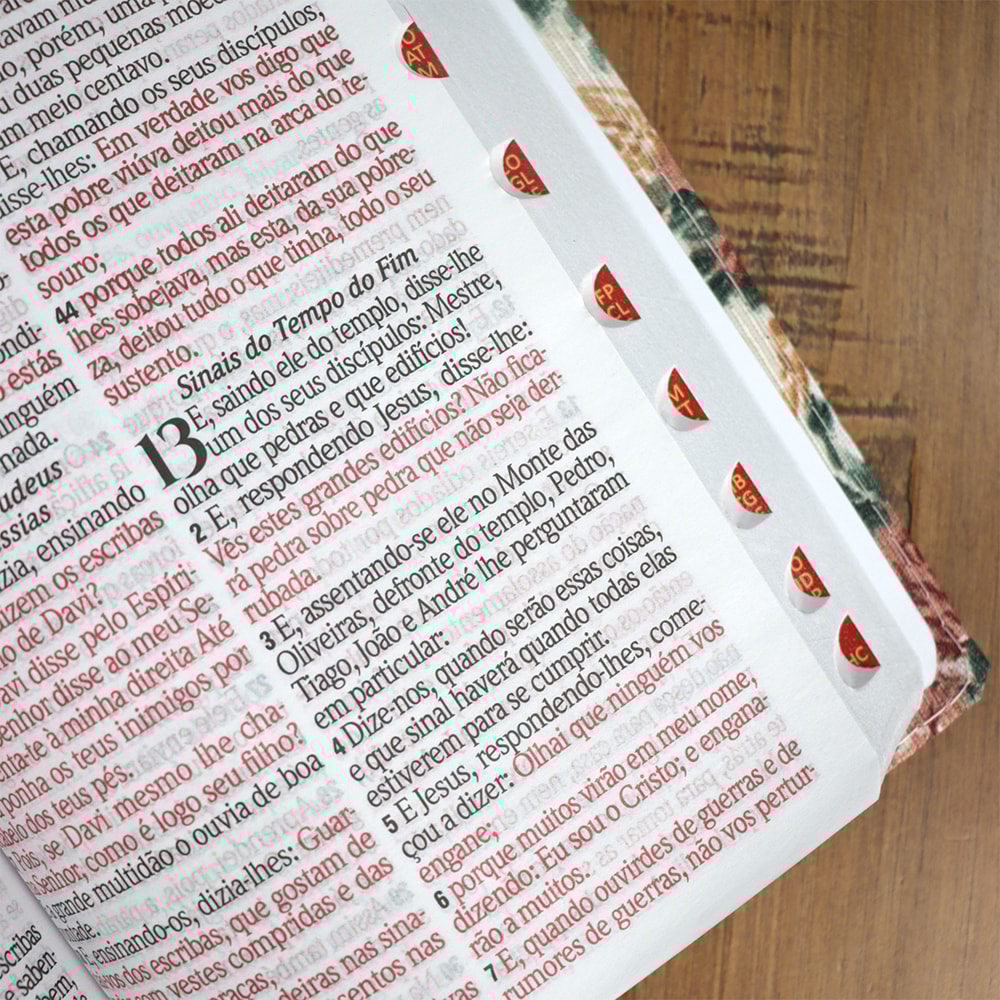 duas pequenas moedas
um meio centavo.
E, chamando os seus discípulos,
disse-lhes: Em verdade vos digo que
esta pobre viúva deitou mais do que
todos os que deitaram na arca do te-
souro;
44 porque todos ali deitaram do que
lhes sobejava, mas esta, da sua pobre-
za, deitou tudo o que tinha, todo o seu
sustento.
Sinais do Tempo do Fim
13 E, saindo ele do templo, disse-lhe
um dos seus discípulos: Mestre,
olha que pedras e que edifícios!
2 E, respondendo Jesus, disse-lhe:
Vês estes grandes edifícios? Não fica-
rá pedra sobre pedra que não seja der-
rubada.
3 E, assentando-se ele no Monte das
Oliveiras, defronte do templo, Pedro,
Tiago, João e André lhe perguntaram
em particular:
4 Dize-nos, quando serão essas coisas,
e que sinal haverá quando todas elas
estiverem para se cumprir.
5 E Jesus, respondendo-lhes, come-
çou a dizer: Olhai que ninguém vos
engane;
6 porque muitos virão em meu nome,
dizendo: Eu sou o Cristo; e engana-
rão a muitos.
7 E, quando ouvirdes de guerras e de
rumores de guerras, não vos pertur-
estás
ninguém
nada.
ensinando
dizem os escribas
de Davi?
Davi disse pelo Espíri-
Senhor disse ao meu Se-
à minha direita Até
ponha os teus inimigos por
dos teus pés.
Pois, se Davi mesmo lhe cha-
Senhor, como é logo seu filho?
grande multidão o ouvia de boa
E, ensinando-os, dizia-lhes: Guar-
dos escribas, que gostam de
com vestes compridas e das
nas sina-
nas
MT